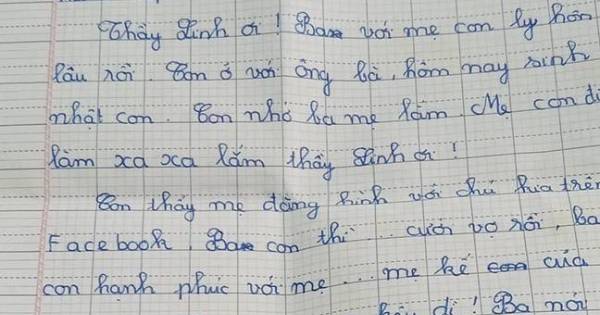 Thầy Linh ơi ! Ba với mẹ con ly hôn
lâu rồi. Con ở với ông bà, hôm nay sinh
nhật con. Con nhớ ba mẹ lắm. Mẹ con đi
làm xa xa lắm thầy Linh ơi !
Con thấy mẹ đăng hình với chú kia trên
Facebook. Ba con thì... cưới vợ rồi, ba
con hạnh phúc với mẹ... mẹ kế của
đi ! Ba nói